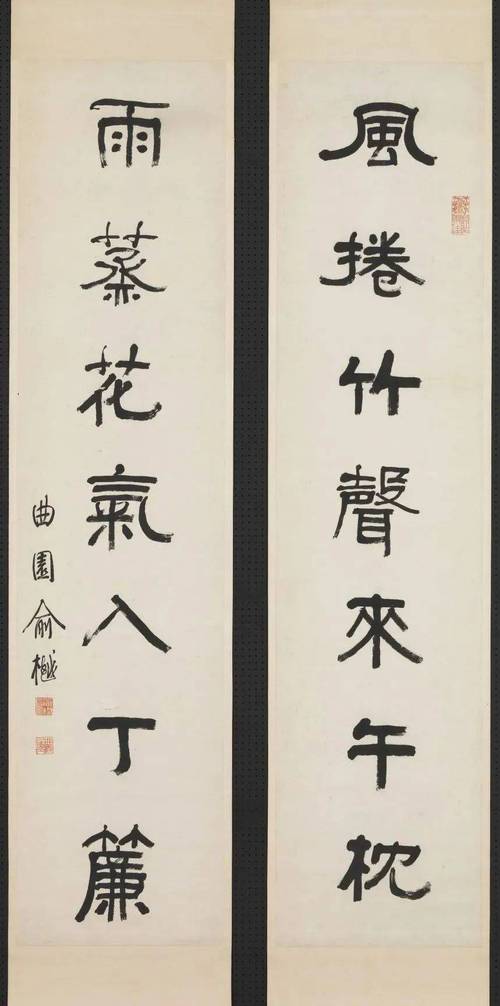 風捲竹聲來午枕
雨蒸花氣入丁簾
曲園俞樾